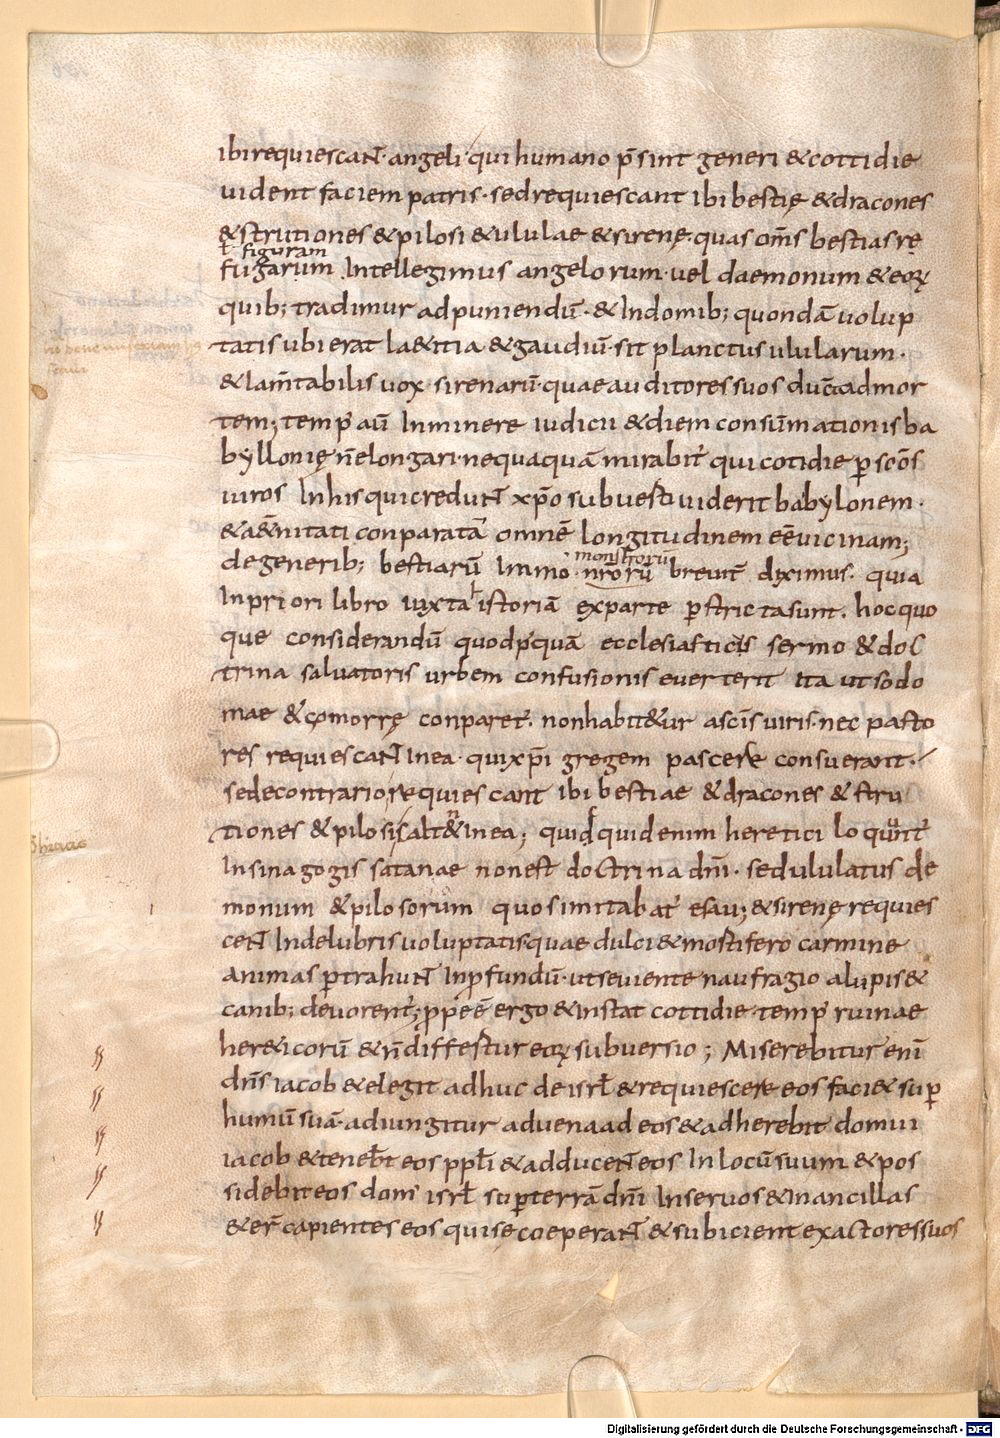 ibi requiescant· angeli· qui humano p̄sint generi & cottidie
uident faciem patris· sed requiescant ibi bestię & dracones
& strutiones & pilosi & ululae & sirenę· quas om̄s bestias rę
ł figuram
fugarum Intellegimus angelorum· uel daemonum & eoꝝ
quib; tradimur ad puniendū· & In domib; quondā uolup
tatis ubi erat la&itia & gaudiū· sit planctus ulularum·
& lam̄tabilis uox sirenarū· quae auditores suos ducā ad mor
tem; temp' aū Inminere iudicii & diem consūmationis ba
byllonię n̄ elongari· nequaquā mirabit' qui cotidie ꝑ sc̄os
uiros In his qui credunt xp̄o subuerti uiderit babylonem·
& a&ernitati conparatā omnē longitudinem eē uicinam;
monstrorū
de generib; bestiarū Immo nr̄orū breuit' diximus· quia
In priori libro iuxta istoriā ex parte ꝑstricta sunt· hoc quo
que considerandū quod pꝰquā ecclesiasticus sermo & doc
trina saluatoris urbem confusionis euerterit ita ut sodo
mae & comorrę conparet'· non habit&ur a sc̄is uiris· nec pasto
res requiescant In ea· qui xp̄i gregem pascere consuerant·
sed e contrario requiescant ibi bestiae & dracones & stru
tiones & pilosi saltent In ea; quidquid enim heretici loquunt'
In sinagogis satanae non est doctrina dn̄i· sed ululatus de
monum & pilosorum quos imitabat' esau; & sirenę requies
cent In delubris uoluptatis quae dulci & mostifero carmine
animas ꝑtrahunt In ꝓfundū· ut seuiente naufragio a lupis &
canib; deuorent'; ꝓpe ē ergo & instat cottidie· temp' ruinae
her&icorū & n̄ differtur eoꝝ subuersio; Miserebitur enī
dn̄s iacob & elegit adhuc de isrł & requiescere eos faci& sup̄
humū suā· adiungitur aduena ad eos & adherebit domui
iacob & teneb̄t eos ppłi & adducent eos In locū suum & pos
sidebit eos dom' isrł sup̄ terrā dn̄i In seruos & In ancillas
& er̄ capientes eos qui se coeperant & subicient exactores suos
Digitalisierung gefördert durch die Deutsche Forschungsgemeinschaft - DFG